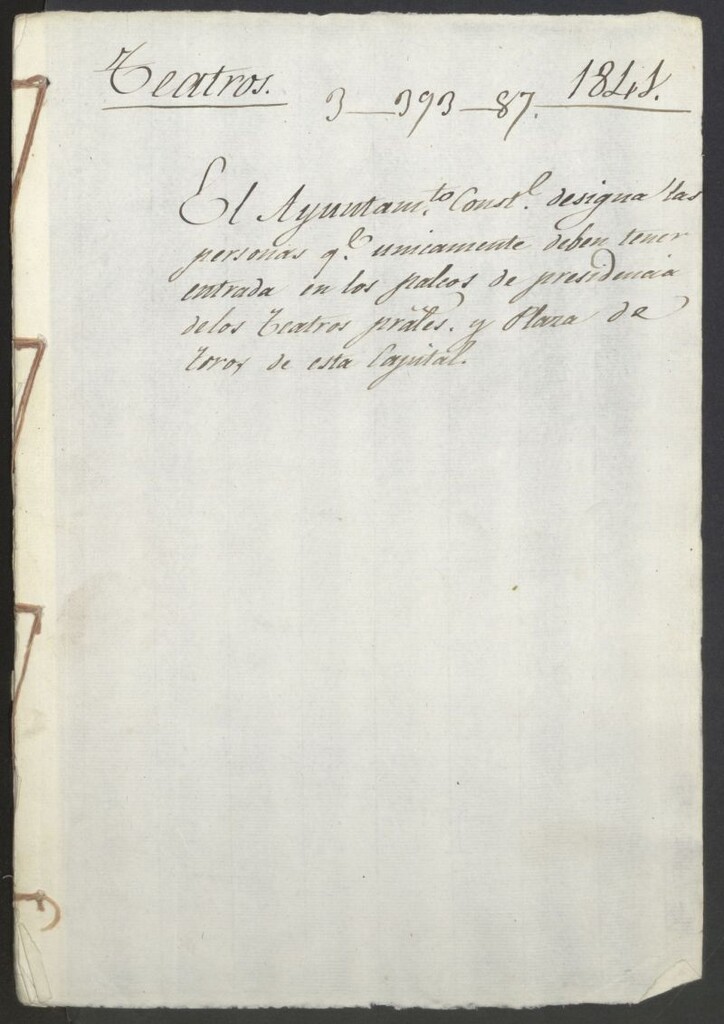 Teatros. 3_393_87. 1841.
El Ayuntam.to Const.l designa las
personas q.e unicamente deben tener
entrada en los palcos de presidencia
delos Teatros práles. y Plaza de
toros de esta Capital.